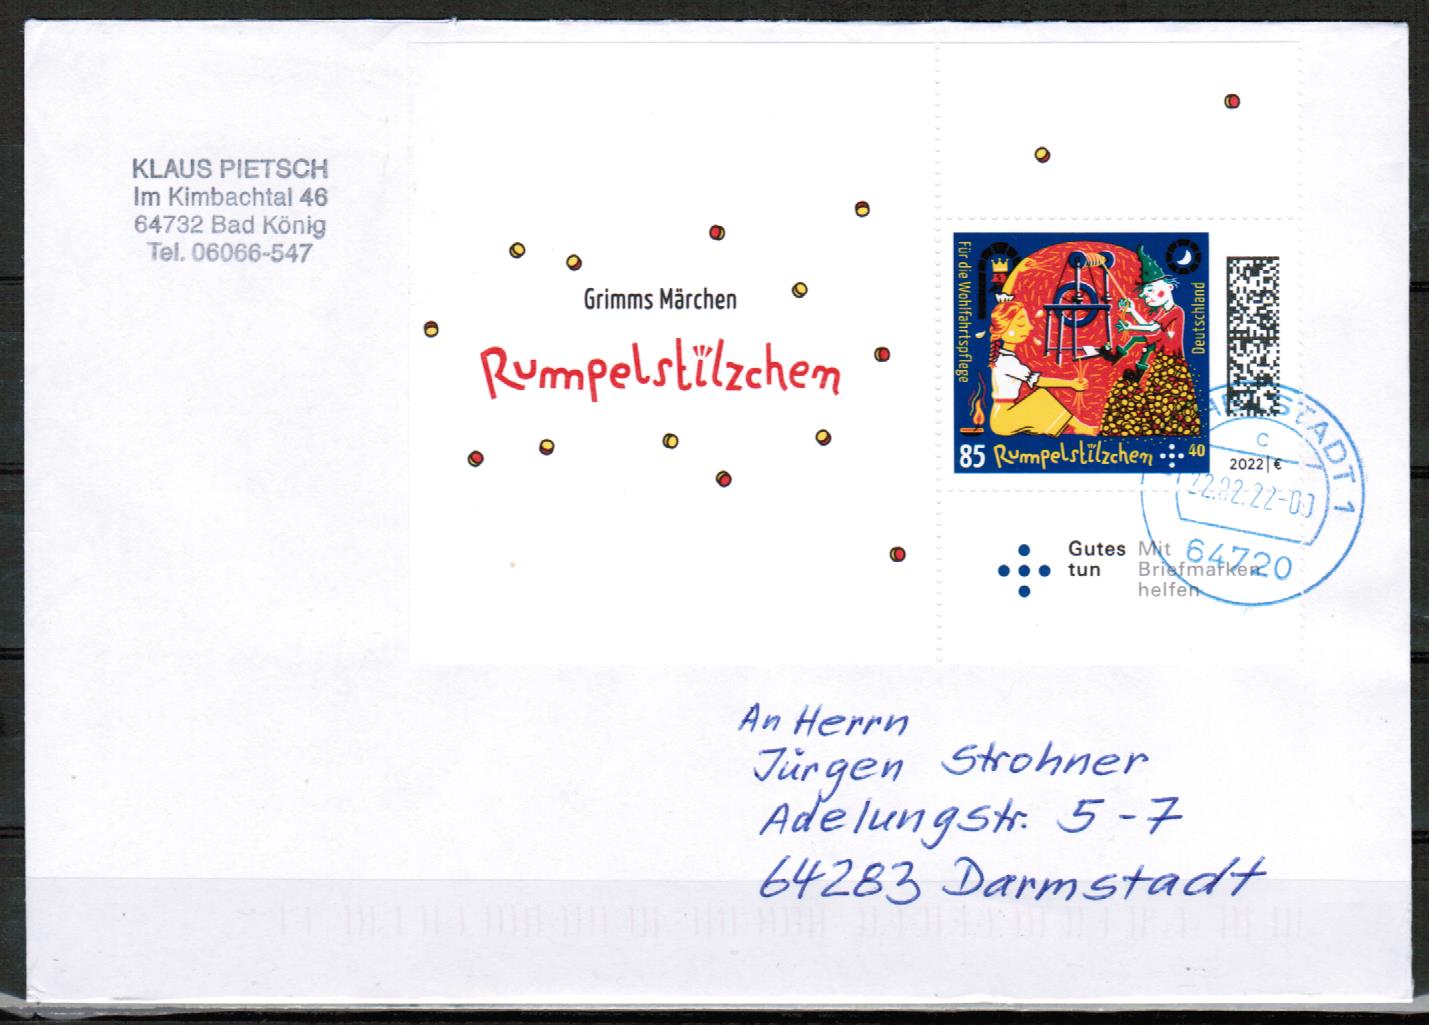 KLAUS PIETSCH
Im Kimbachtal 46
64732 Bad König
Tel. 06066-547
Grimms Märchen
Rumpelstilzchen
Für die Wohlfahrtspflege
Deutschland
85 Rumpelstilzchen 40
2022 | €
STADT 1
c
22.02.22-00
64720
Gutes tun
Mit Briefmarken helfen
An Herrn
Jürgen Strohner
Adelungstr. 5-7
64283 Darmstadt